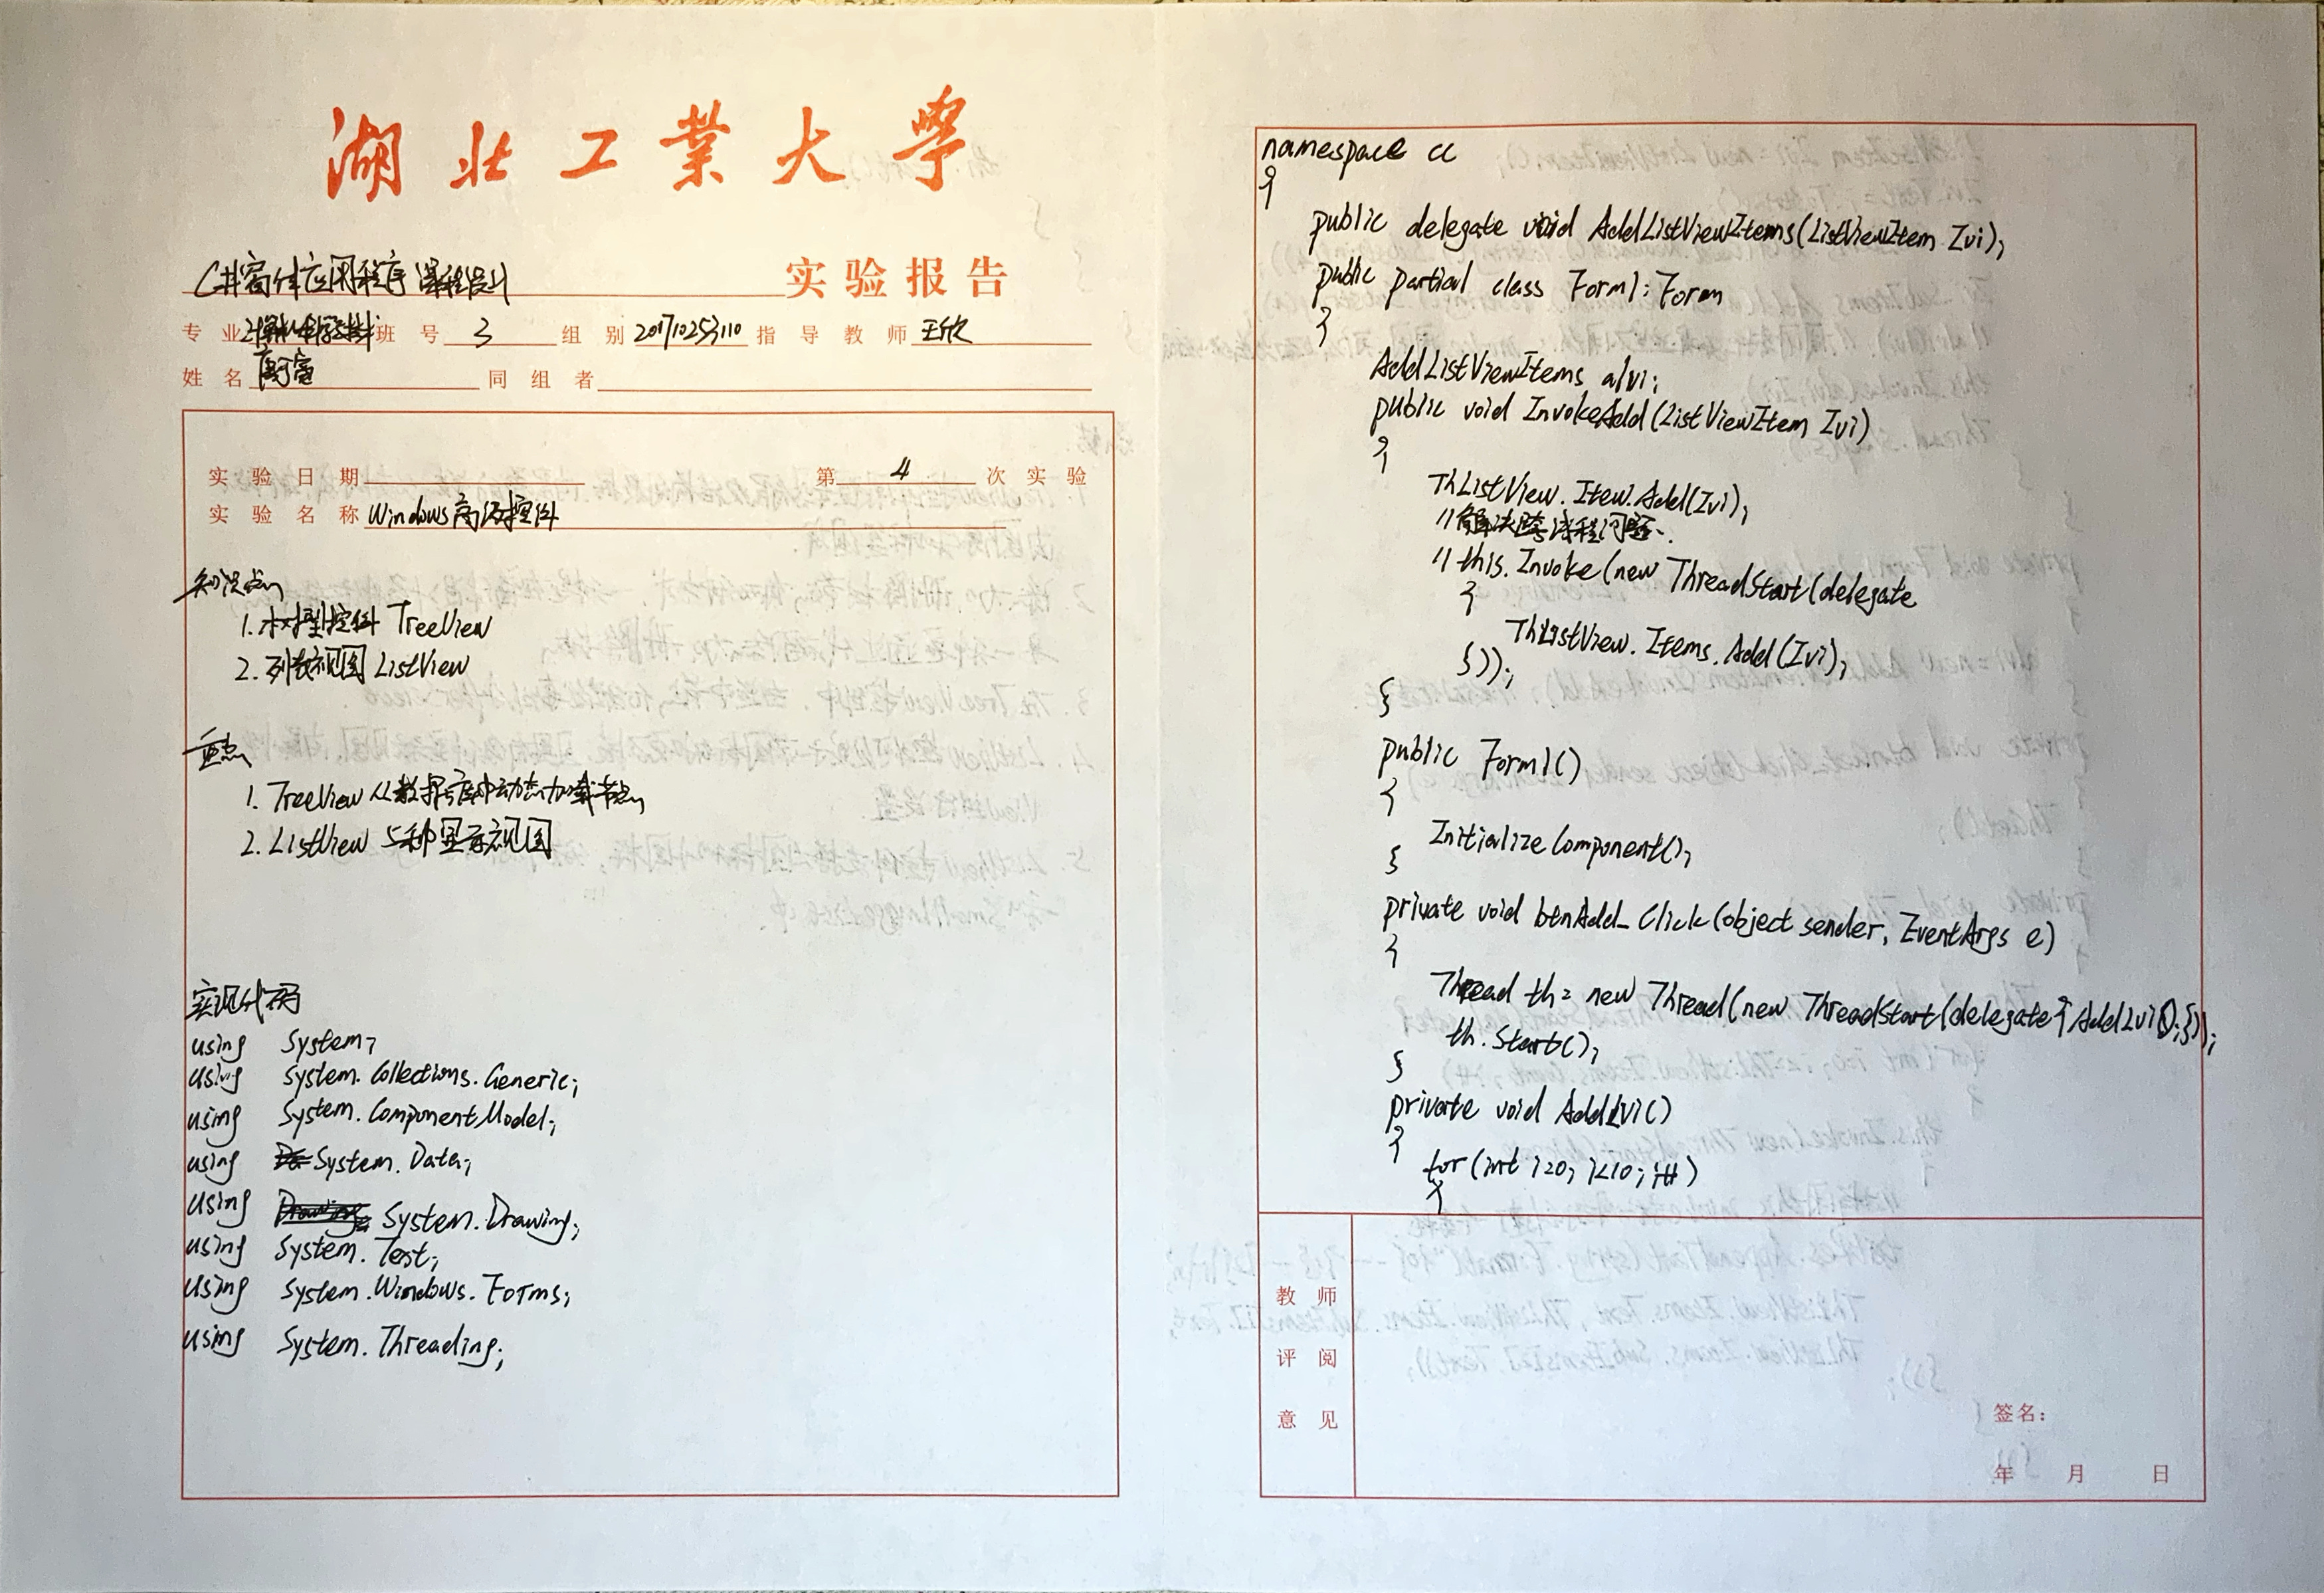 湖北工業大學
C#窗体应用程序课程设计 实验报告
专业 计算机科学与技术 班号 3 组别 201710253110 指导教师 王欣
姓名 同组者
实验日期 第 4 次实验
实验名称 Windows高级控件
知识点
1. 树型控件 TreeView
2. 列表视图 ListView
重点
1. TreeView 从数据库中动态加载节点
2. ListView 5种显示视图
实现代码
using System;
using System.Collections.Generic;
using System.ComponentModel;
using System.Data;
using System.Drawing;
using System.Text;
using System.Windows.Forms;
using System.Threading;
namespace cc
{
public delegate void AddListViewItems(ListViewItem Ivi);
public partial class Form1:Form
{
AddListViewItems alvi;
public void InvokeAdd(ListViewItem Ivi)
{
ThListView.Item.Add(Ivi);
//解决跨线程问题.
//this.Invoke(new ThreadStart(delegate
{
ThListView.Items.Add(Ivi);
}));
}
public Form1()
{
InitializeComponent();
}
private void btnAdd_Click(object sender, EventArgs e)
{
Thread th= new Thread(new ThreadStart(delegate{AddLvi();}));
th.Start();
}
private void AddLvi()
{
for(int i=0; i<10; i++)
{
教师
评阅
意见
签名:
年 月 日